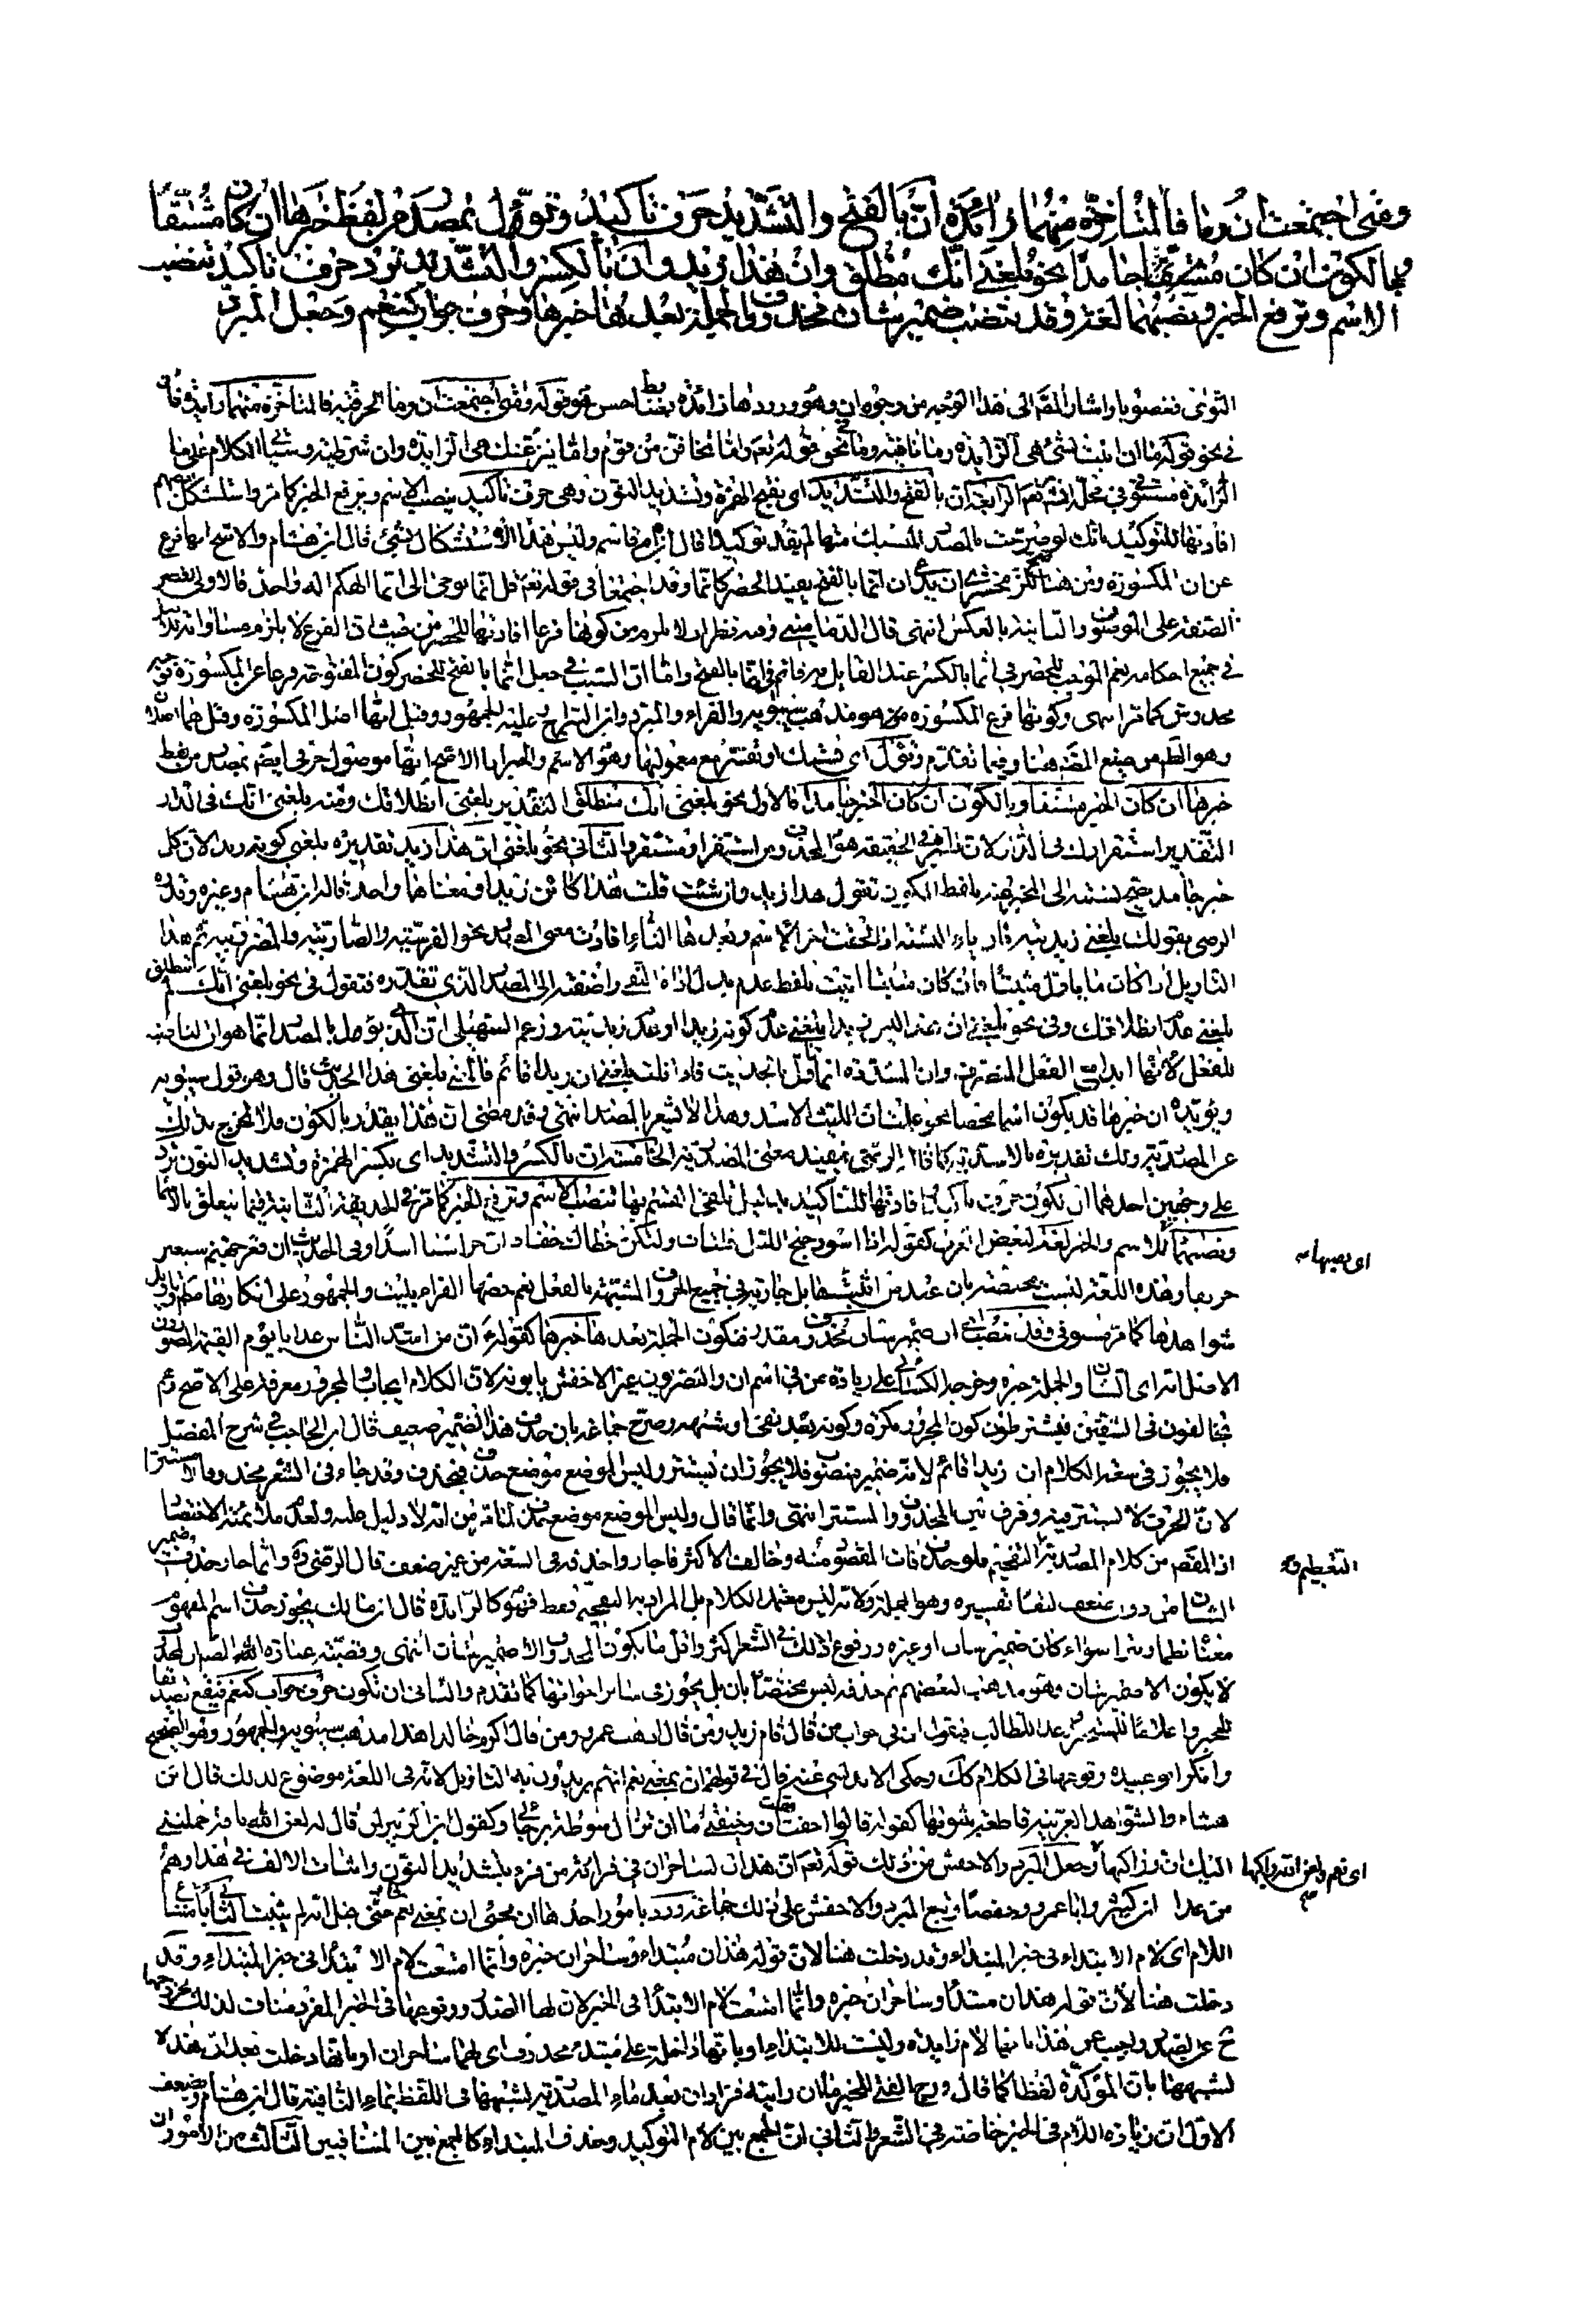 ومتى اجتمعت ان وما فالمتاخرة منهما زائدة انّ بالفتح والتشديد حرف تاكيد وتؤول بمصدر من لفظ خبرها ان كان مشتقا
وبالكون ان كان جامدا نحو بلغني انّك منطلق وان هذا زيد وان بالكسر والتشديد ترد حرف تاكيد تنصب
الاسم وترفع الخبر ونصبهما لغة وقد تنصب ضمير شان محذوف والجملة بعدها خبرها وحرف جواب كنعم وجعل المبرد
واشار المص الى هذا الوجه من وجوه ان وهو ورودها زائدة بقوله ومتى اجتمعت ان وما الحرفية فالمتاخرة منهما زائدة
في نحو قولك ما ان اتيت بشئ هي الزايدة وما نافية وفي نحو قوله تعم واما تخافن من قوم واما ينزغنك هي الزايدة وان شرطية وسياتي الكلام على ما
الزائدة مستوفى في محله انشاء الله تعم الرابعة ان بالفتح والتشديد اي بفتح الهمزة وتشديد النون وهي حرف تاكيد ينصب الاسم ويرفع الخبر كما مر واستشكل بعضهم
افادتها للتوكيد بانك لو صرحت بالمصدر المنسبك منها لم يفد توكيدا قال ابن ام قاسم وليس هذا الاستشكال بشئ قال ابن هشام والاصح انها فرع
عن ان المكسورة ومن هنا صح للزمخشري ان يدعي ان انما بالفتح يفيد الحصر كانما وقد اجتمعا في قوله تعم قل انما يوحى الى انما الهكم اله واحد فالاولى لقصر
الصفة على الموصوف والثانية بالعكس انتهى قال الدماميني وفيه نظر اذ لا يلزم من كونها فرعا افادتها للحصر من حيث ان الفرع لا يلزم مساواته لاصله
في جميع احكامه نعم الموجب للحصر في انما بالكسر عند القايل به قائم في انما بالفتح واما ان السبب في جعل انما بالفتح للحصر كون المفتوحة فرعا عن المكسورة
مخدوش كما ترى انتهى وكونها فرع المكسورة هو مذهب سيبويه والفراء والمبرد وابن السراج وعليه الجمهور وقيل انها اصل المكسورة وقيل هما اصلان
وهو الظ من صنيع المص هنا وفيما تقدم وتؤول اي تسبك وتفسر مع معموليها وهو الاسم والخبر اذ الاصح انها موصول حرفي ايضا بمصدر من لفظ
خبرها ان كان الخبر مشتقا وبالكون ان كان الخبر جامدا فالاول نحو بلغني انك منطلق التقدير بلغني انطلاقك ومنه بلغني انك في الدار
التقدير استقرارك في الدار لان الخبر في الحقيقة هو المحذوف من استقر او مستقر والثاني نحو بلغني ان هذا زيد تقديره بلغني كونه زيدا لان كل
خبر جامد يصح نسبته الى المخبر عنه بلفظ الكون تقول هذا زيد وان شئت قلت هذا كائن زيدا ومعناهما واحد قاله ابن هشام وغيره وقدره
الرضي بقولك بلغني زيديته فان ياء النسبة اذا لحقت اخر الاسم وبعدها التاء افادت معنى المصدر نحو الفرسية والضاربية والمضروبية ثم هذا
التاويل اذا كان ما ياول مثبتا فان كان منفيا اتيت بلفظ عدم بدل اداة النفي واضفته الى المصدر الذي تقدره فتقول في نحو بلغني انك لم تنطلق
بلغني عدم انطلاقك وفي نحو بلغني ان هذا ليس زيدا بلغني عدم كونه زيدا او عدم زيديته وزعم السهيلي ان الذي يؤول بالمصدر انما هو ان الناصبة
للفعل لانها ابدا مع الفعل المتصرف وان المشددة انما تؤول بالحديث فاذا قلت بلغني ان زيدا قائم فالمعنى بلغني هذا الحديث قال وهو قول سيبويه
ويؤيده ان خبرها قد يكون اسما محضا نحو علمت ان الليث الاسد وهذا لا يشعر بالمصدر انتهى وقد مضى ان هذا يقدر بالكون فلا يخرج بذلك
عن المصدرية ولك تقديره بالاسدية كما قال الرضي فيفيد معنى المصدرية الخامسة ان بالكسر والتشديد اي بكسر الهمزة وتشديد النون ترد
على وجهين احدهما ان تكون حرف تاكيد افادتها للتاكيد بدليل تلقي القسم بها تنصب الاسم وترفع الخبر كما مر في الحديقة الثانية فيما يتعلق بالاسماء
ونصبهما للاسم والخبر لغة لبعض العرب كقوله اذا اسود جنح الليل فلتات ولتكن خطاك خفافا ان حراسنا اسدا وفي الحديث ان قعر جهنم سبعين
اي نصبها
خريفا وهذه اللغة ليست مختصة بان عند من اثبتها بل جارية في جميع الحروف المشبهة بالفعل نعم خصها الفراء بليت والجمهور على انكارها مطلقا وتاولوا
شواهدها كما مر مستوفى وقد تنصب اي ان ضمير شان محذوف مقدر فتكون الجملة بعدها خبرها كقوله ع ان من اشد الناس عذابا يوم القيمة المصورون
الاصل انه اي الشان والجملة خبره وخرجه الكسائي على زيادة من في اسم ان والبصريون غير الاخفش يابونه لان الكلام ايجاب والمجرور معرفة على الاصح وهم
يخالفون في الشقين فيشترطون كون المجرور نكرة وكونه بعد نفي او شبهه وصرح جماعة بان حذف هذا الضمير ضعيف قال ابن الحاجب في شرح المفصل
فلا يجوز في سعة الكلام ان زيدا قائم لانه ضمير منصوب فلا يجوز ان يستتر وليس الموضع موضع حذف فيحذف وقد جاء في الشعر محذوفا لا مستترا
لان الحرف لا يستتر فيه وفرق بين المحذوف والمستتر انتهى وانما قال وليس الموضع موضع حذف
اذ القصد من كلام المصدر به التفخيم فلو حذف فات المقصود منه وخالف الاكثر فاجازوا حذفه في السعة من غير ضعف قال الرضي ره وانما جاز حذف ضمير
التعظيم
الشان من دون ضعف لبقاء تفسيره وهو الجملة ولانه ليس معتمد الكلام بل المراد به التفخيم فقط فهو كالزايدة قال ابن مالك يجوز حذف اسم المفهوم
معناه نظما ونثرا سواء كان ضمير شان او غيره ووقوع ذلك في الشعر كثير واقل ما يكون المحذوف الا ضمير شان انتهى وقضية عبارة المص ان المحذوف
لا يكون الا ضمير شان وهو مذهب لبعضهم ثم حذفه ليس مختصا بان بل يجوز في سائر اخواتها كما تقدم والثاني ان تكون حرف جواب كنعم فتقع تصديقا
للمخبر واعلاما للمستخبر ووعدا للطالب فيقول ان في جواب من قال قام زيد ومن قال اذهب عمرو ومن قال اكرم خالدا هذا مذهب سيبويه والجمهور وهو الصحيح
وانكر ابو عبيدة وقوعها في الكلام كك وحكى الاندلسي عنه قال في قولهم ان بمعنى نعم انهم يريدون به التاويل لانه في اللغة موضوع لذلك قال ابن
اليك ان وراكبها وجعل المبرد والاخفش من ذلك قوله تعم ان هذان لساحران في قراءة من قرء بتشديد النون واثبات الالف في هذا وهم
اي نعم ولعن الله راكبها
من عدا ابن كثير وابا عمرو وحفصا وتبع المبرد والاخفش على ذلك جماعة ورد بامور احدها ان مجئ ان بمعنى نعم شاذ حتى قيل انه لم يثبت الثاني امتناع
اللام اي لام الابتداء في خبر المبتداء وقد دخلت هنا لان قوله هذان مبتداء وساحران خبره وانما امتنعت لام الابتداء في خبر المبتداء وقد
دخلت هنا لان قوله هذان مبتدأ وساحران خبره وانما امتنعت لام الابتداء في الخبر لان لها الصدر ووقوعها في الخبر المفرد مناف لذلك لخروجها
ح عن الصدر واجيب عن هذا بانها لام زايدة وليست للابتداء او بانها داخلة على مبتدء محذوف اي لهما ساحران او بانها دخلت بعد ان هذه
لشبهها بان المؤكدة لفظا كما قال ورج الفتى للخير ما ان رايته فزاد ان بعد ماء المصدرية لشبهها في اللفظ بماء النافية قال ابن هشام ويضعف
الاول ان زيادة اللام في الخبر خاصة في الشعر والثاني ان الجمع بين لام التوكيد وحذف المبتداء كالجمع بين المتنافيين الثالث من الامور ان